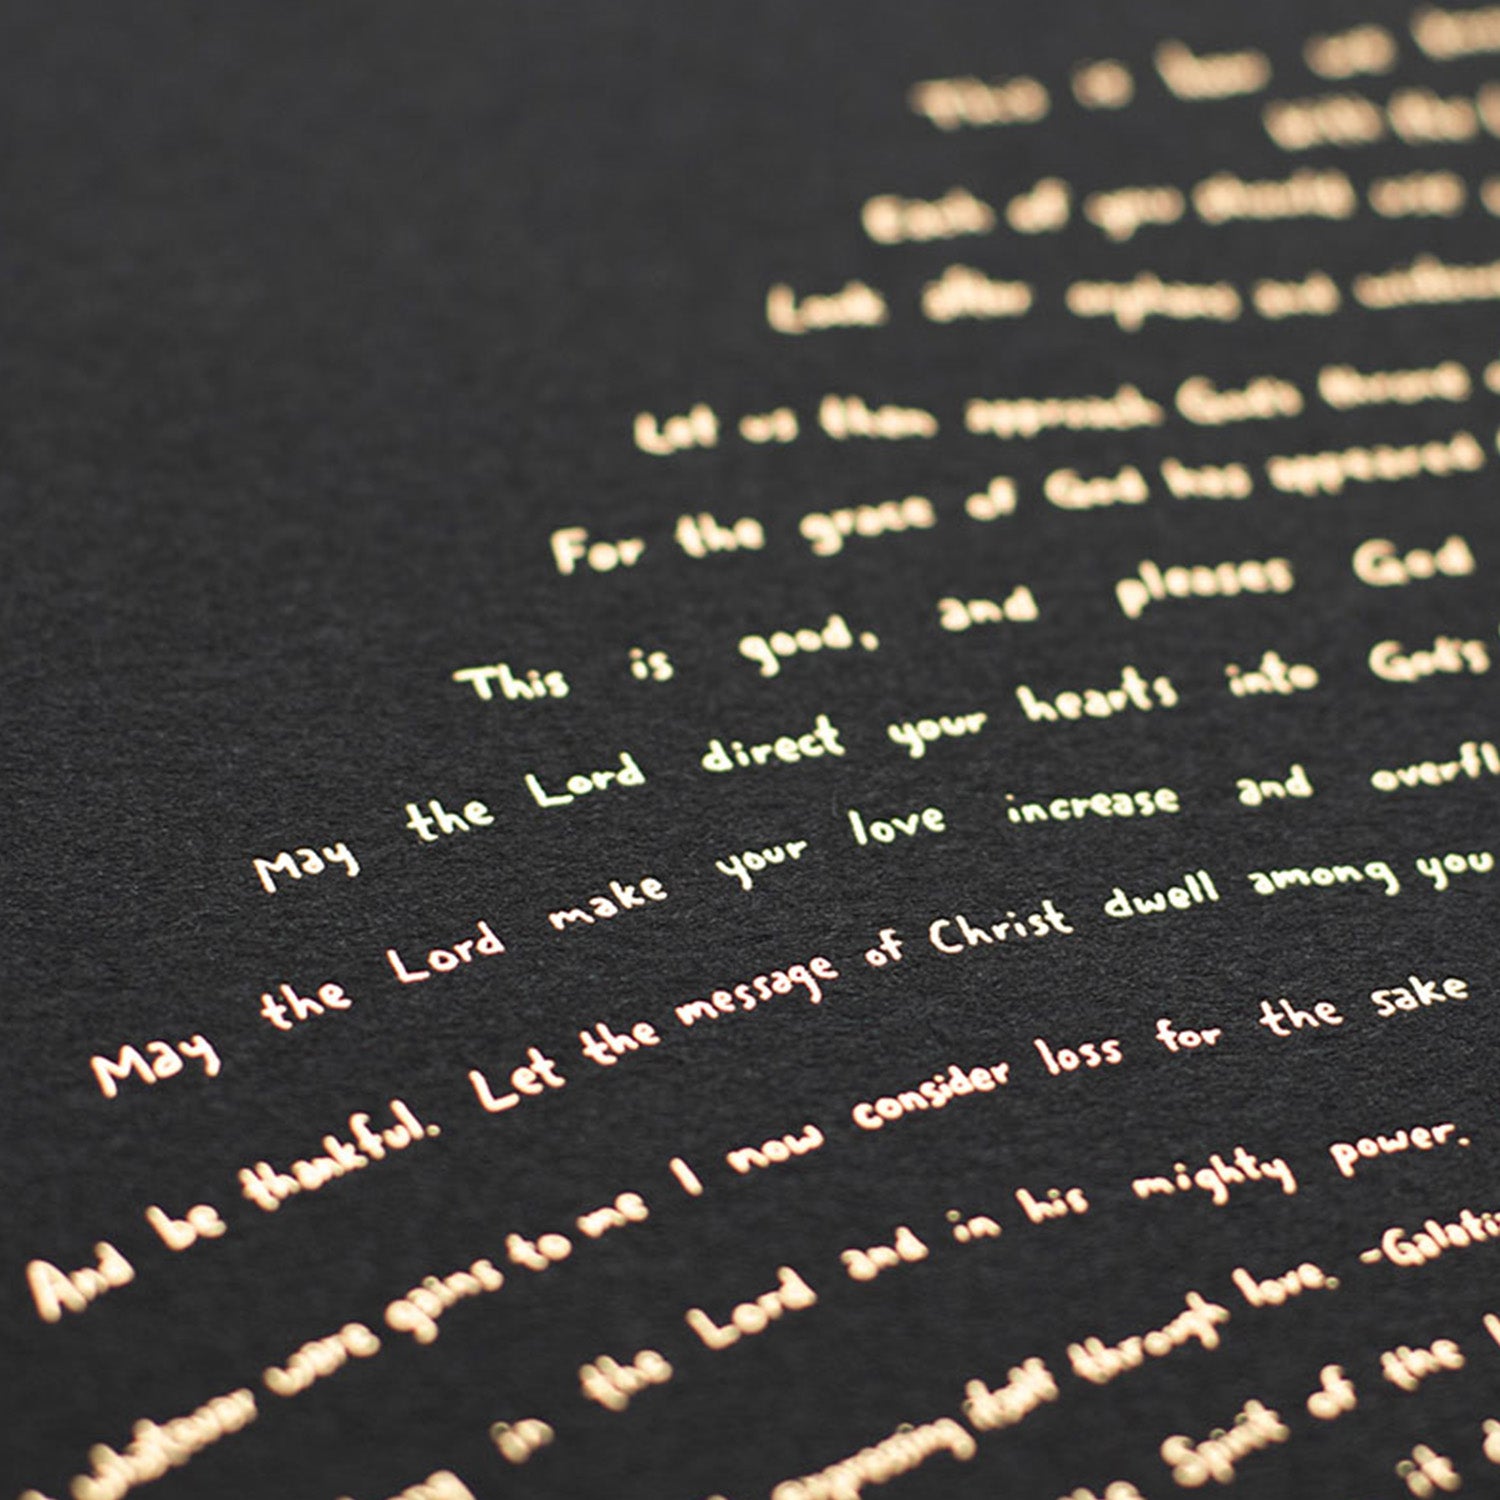 This is how we know
with the
Each of you should use
Look after orphans and widows
Let us then approach God's throne
For the grace of God has appeared
This is good, and pleases God
May the Lord direct your hearts into God's
May the Lord make your love increase and overfl
And be thankful. Let the message of Christ dwell among you
whatever were gains to me I now consider loss for the sake
in the Lord and in his mighty power.
expressing itself through love. -Galati
Spirit of the L
it d